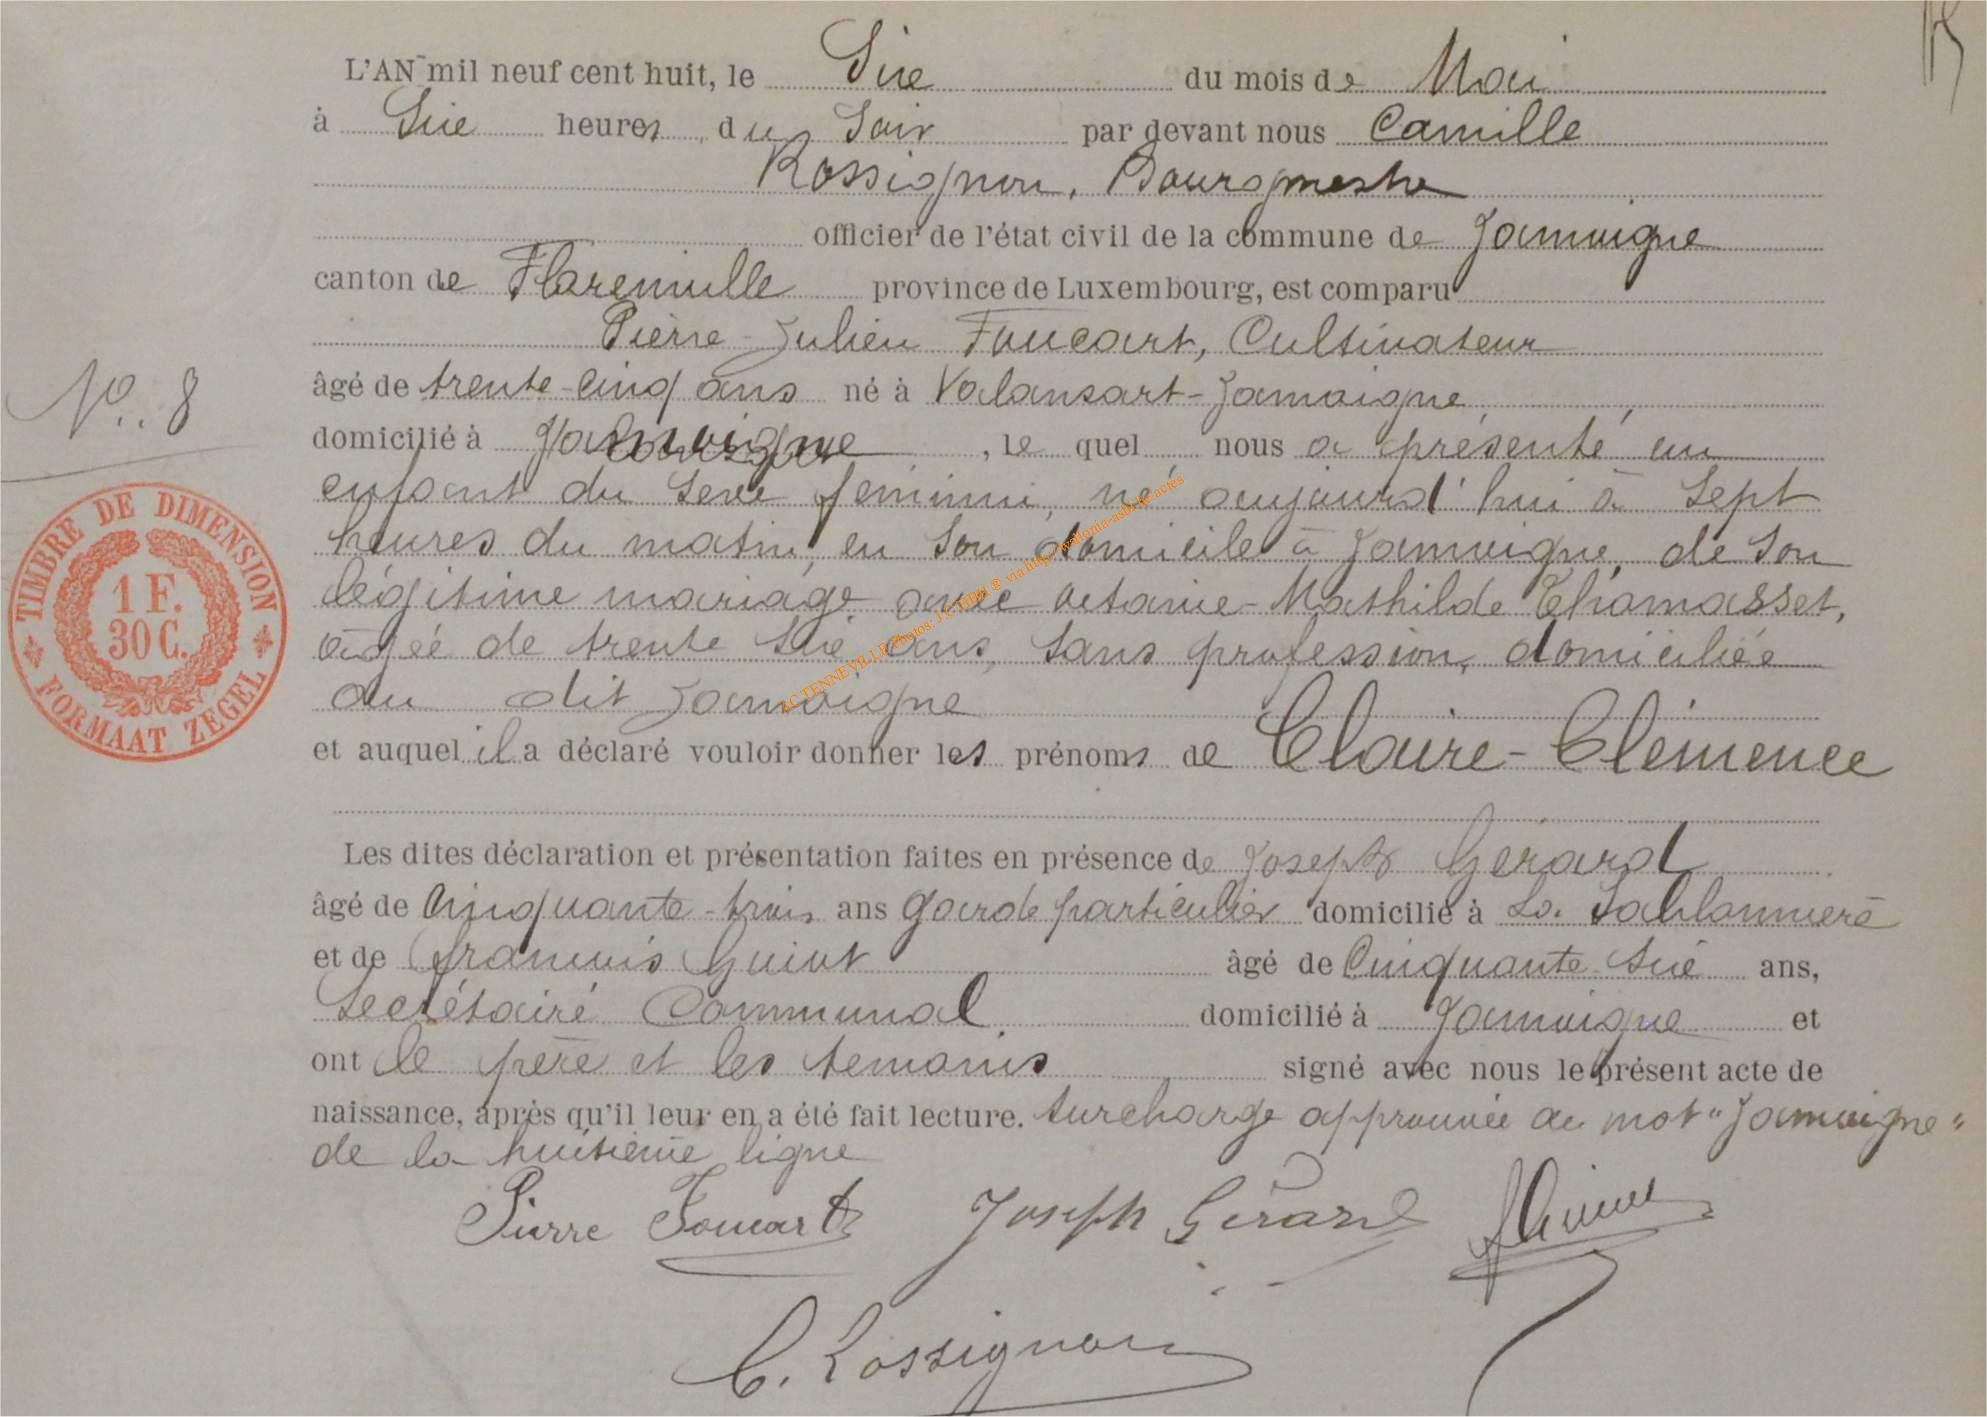 L'AN mil neuf cent huit, le Six du mois de Mai
à Six heures du Soir par devant nous Camille
Rossignon, Bourgmestre
officier de l'état civil de la commune de Jamoigne
canton de Florenville province de Luxembourg, est comparu
Pierre-Julien Foucart, Cultivateur
âgé de trente-cinq ans né à Valansart-Jamoigne
domicilié à Jamoigne, le quel nous a présenté un
N°. 8
enfant du sexe féminin, né aujourd'hui à Sept
heures du matin, en son domicile à Jamoigne, de son
légitime mariage avec Octavie-Mathilde Thomasset,
âgée de trente six ans, sans profession, domiciliée
au dit Jamoigne
et auquel il a déclaré vouloir donner les prénoms de Claire-Clémence
Les dites déclaration et présentation faites en présence de Joseph Gérard
âgé de Cinquante-trois ans garde particulier domicilié à La Sablonnière
et de François Guiot âgé de Cinquante-six ans,
Secrétaire Communal domicilié à Jamoigne et
ont le père et les témoins signé avec nous le présent acte de
naissance, après qu'il leur en a été fait lecture. Surcharge approuvée au mot "Jamoigne"
de la huitième ligne
Pierre Foucart Joseph Gérard
C. Rossignon
TIMBRE DE DIMENSION
1 F.
30 C.
FORMAAT ZEGEL
AC TENNEVILLE Photos: J C TIPRI @ via http://wallonia-asbl.be/actes